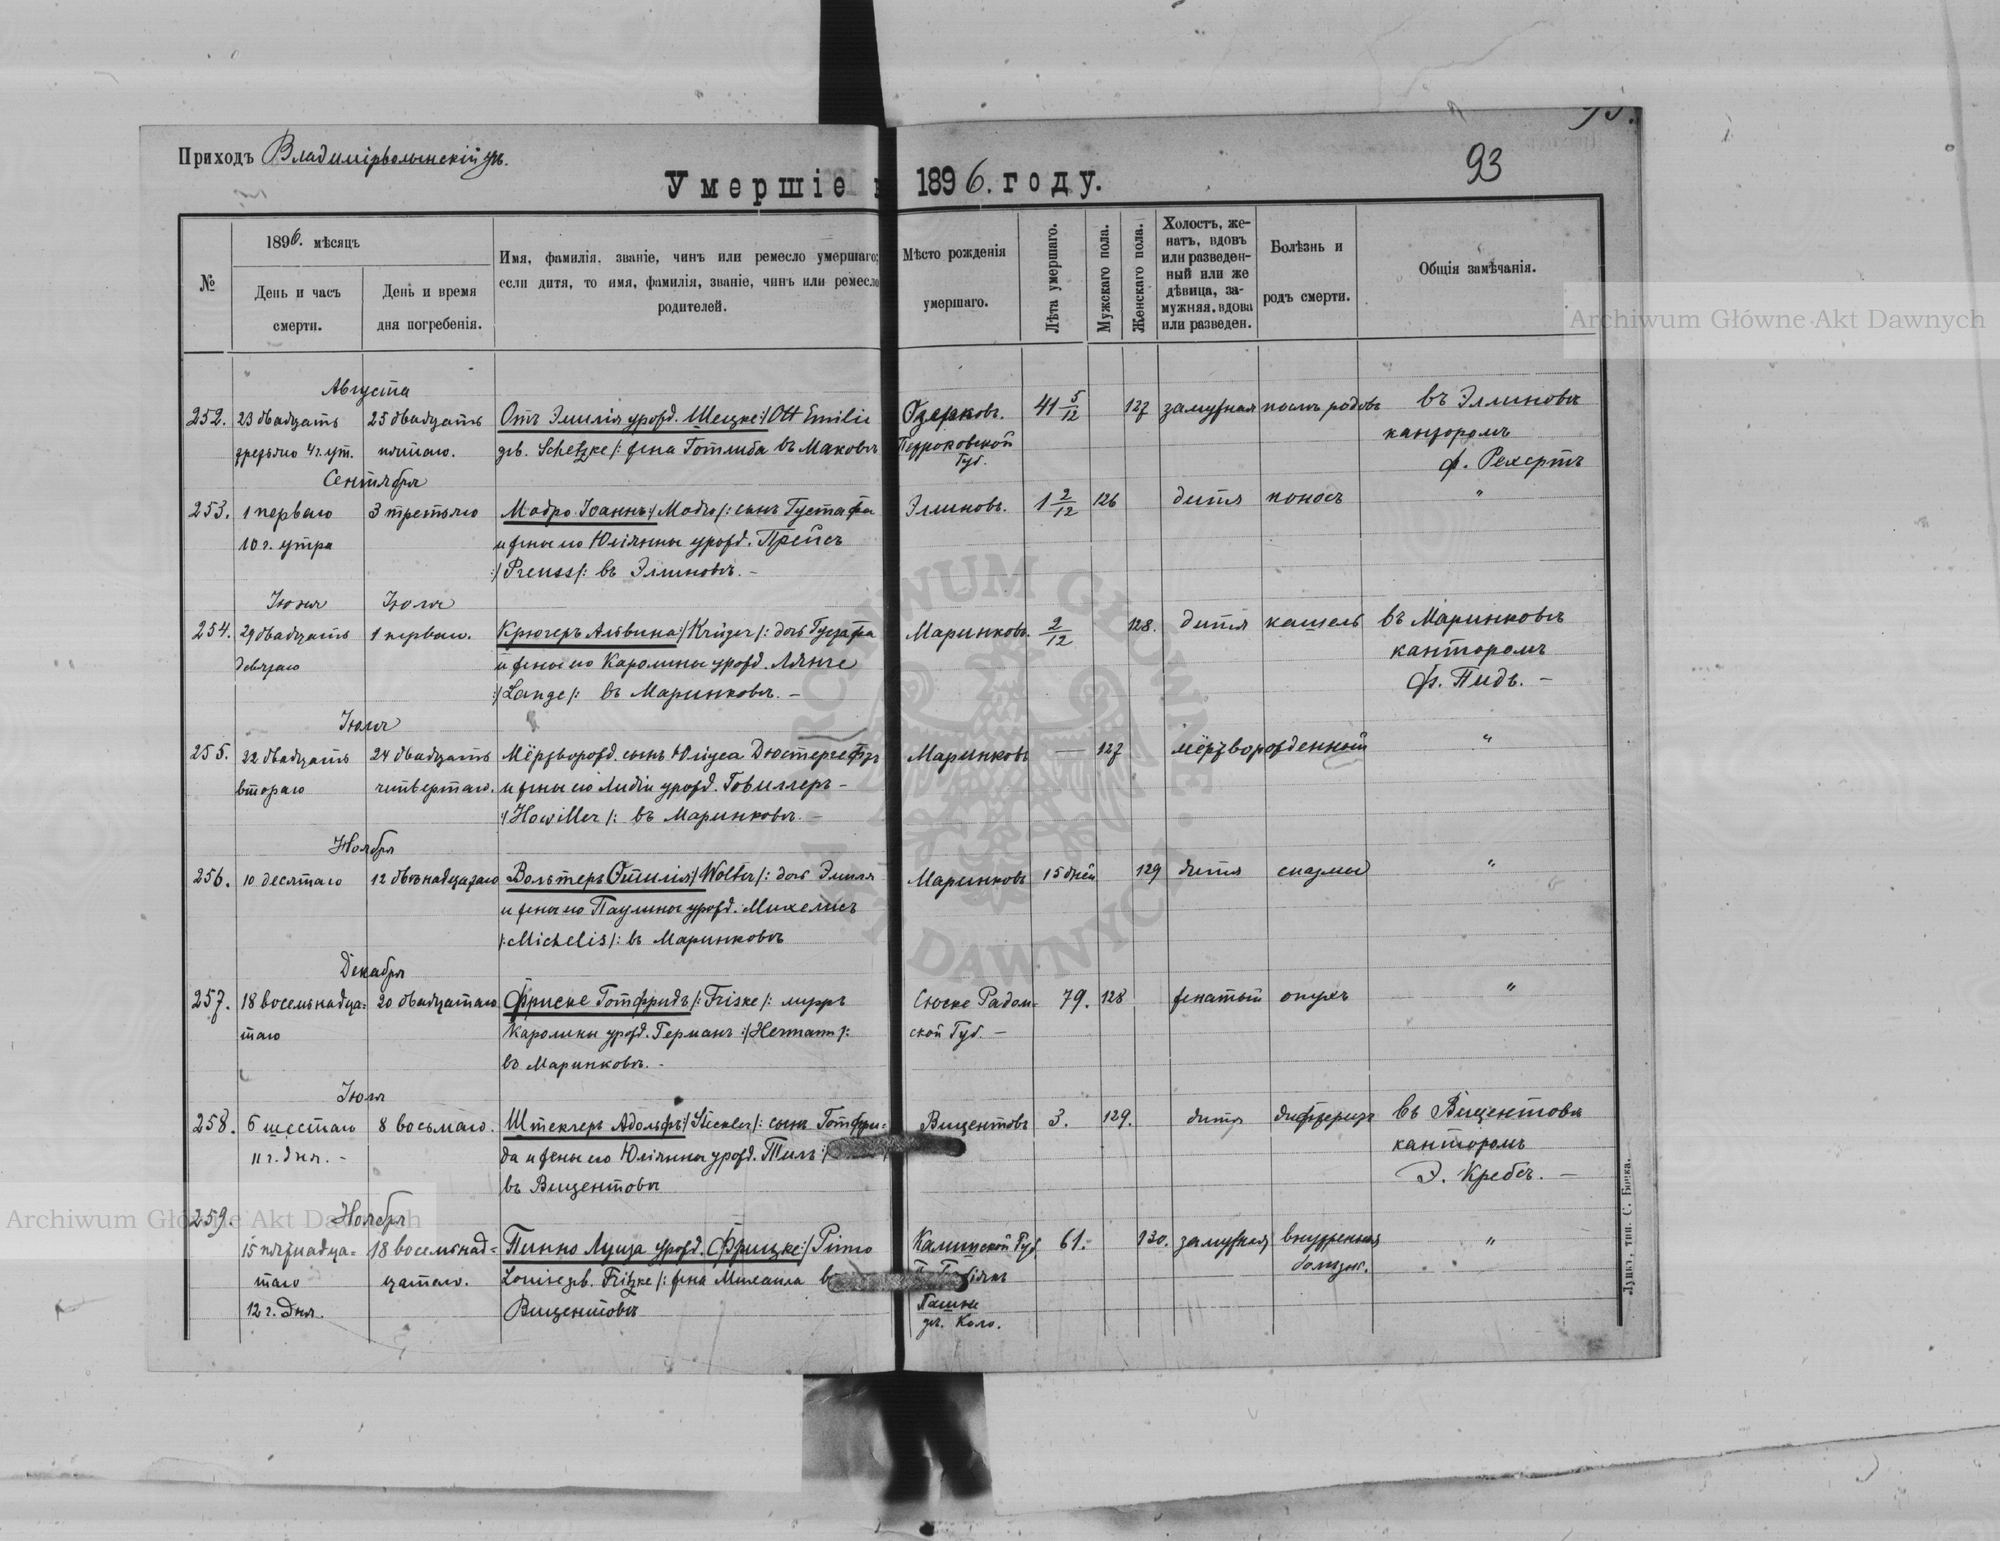 93
Приходъ Владимірволынскій
93
Умершіе 1896. году.
№
1896. мѣсяцъ
День и часъ
смерти.
День и время
дня погребенія.
Имя, фамилія, званіе, чинъ или ремесло умершаго;
если дитя, то имя, фамилія, званіе, чинъ или ремесло
родителей.
Мѣсто рожденія
умершаго.
Лѣта умершаго.
Мужскаго пола.
Женскаго пола.
Холостъ, же-
натъ, вдовъ
или разведен-
ный или же
дѣвица, за-
мужняя, вдова
или разведен.
Болѣзнь и
родъ смерти.
Общія замѣчанія.
Archiwum Główne Akt Dawnych
Августа
252. 23 двадцать 25 двадцать Отъ Эмилія урожд. Шецке :/ Ott Emilie Озерковъ. 41 5/12 127 замужняя послѣ родовъ въЭлиновѣ
третьяго 4 г. ут. пятаго. geb. Schetzke /: жена Готлиба въ Маковѣ Петроковской канторомъ
Губ. ф. Рехертъ
Сентября
253. 1 перваго 3 третьяго Мадро Іоаннъ :/ Madro /: сынъ Густафа Элиновъ. 1 2/12 126 дитя поносъ "
10 г. утра и жены его Юліянны урожд. Прейсъ
:/ Preuss /: въ Элиновѣ. –
Іюня Іюля
254. 29 двадцать 1 перваго. Крюгеръ Альвина :/ Krüger /: дочь Густафа Маринковъ. 2/12 128. дитя кашель въ Маринковѣ
девятаго и жены его Каролины урожд. Лянге канторомъ
:/ Lange /: въ Маринковѣ. – ф. Пидъ. –
Іюля
255. 22 двадцать 24 двадцать Мёртворожд. сынъ Юлиуса Дюстергефтъ Маринковъ — 127 мёртворожденный "
втораго четвертаго. и жены его Лидіи урожд. Говиллеръ –
:/ Howiller /: въ Маринковѣ. –
Ноября
256. 10 десятаго 12 двѣнадцатаго Вольтеръ Отилія :/ Wolter /: дочь Эмиля Маринковъ 15 дней 129 дитя спазмы "
и жены его Паулины урожд. Михелисъ
/: Michelis /: въ Маринковѣ
Декабря
257. 18 восемьнадца= 20 двадцатаго Фриске Готфридъ /: Friske /: мужъ Сюске Радом- 79. 128 женатый опухъ "
таго Каролины урожд. Германъ :/ Hermann /: ской Губ. –
въ Маринковѣ. –
Іюля
258. 6 шестаго 8 восьмаго. Штеклеръ Адольфъ :/ Stickler /: сынъ Готфри- Вицентовъ 3. 129. дитя дифтеритъ въ Вицентовѣ
11 г. дня. – да и жены его Юліянны урожд. Тимъ канторомъ
въ Вицентовѣ Э. Кребсъ. –
259. Ноября
15 пятнадца= 18 восемьнад= Пинно Луиза урожд. Фрицке :/ Pinno Калишской Губ. 61. 130. замужняя внутренняя "
таго цатаго. Louise geb. Fritzke /: жена Михаила болѣзнь.
12 г. дня. Вицентовѣ Коло.
Archiwum Główne Akt Dawnych
Луцкъ, тип. С. Бонка.
ARCHIWUM GŁÓWNE AKT DAWNYCH